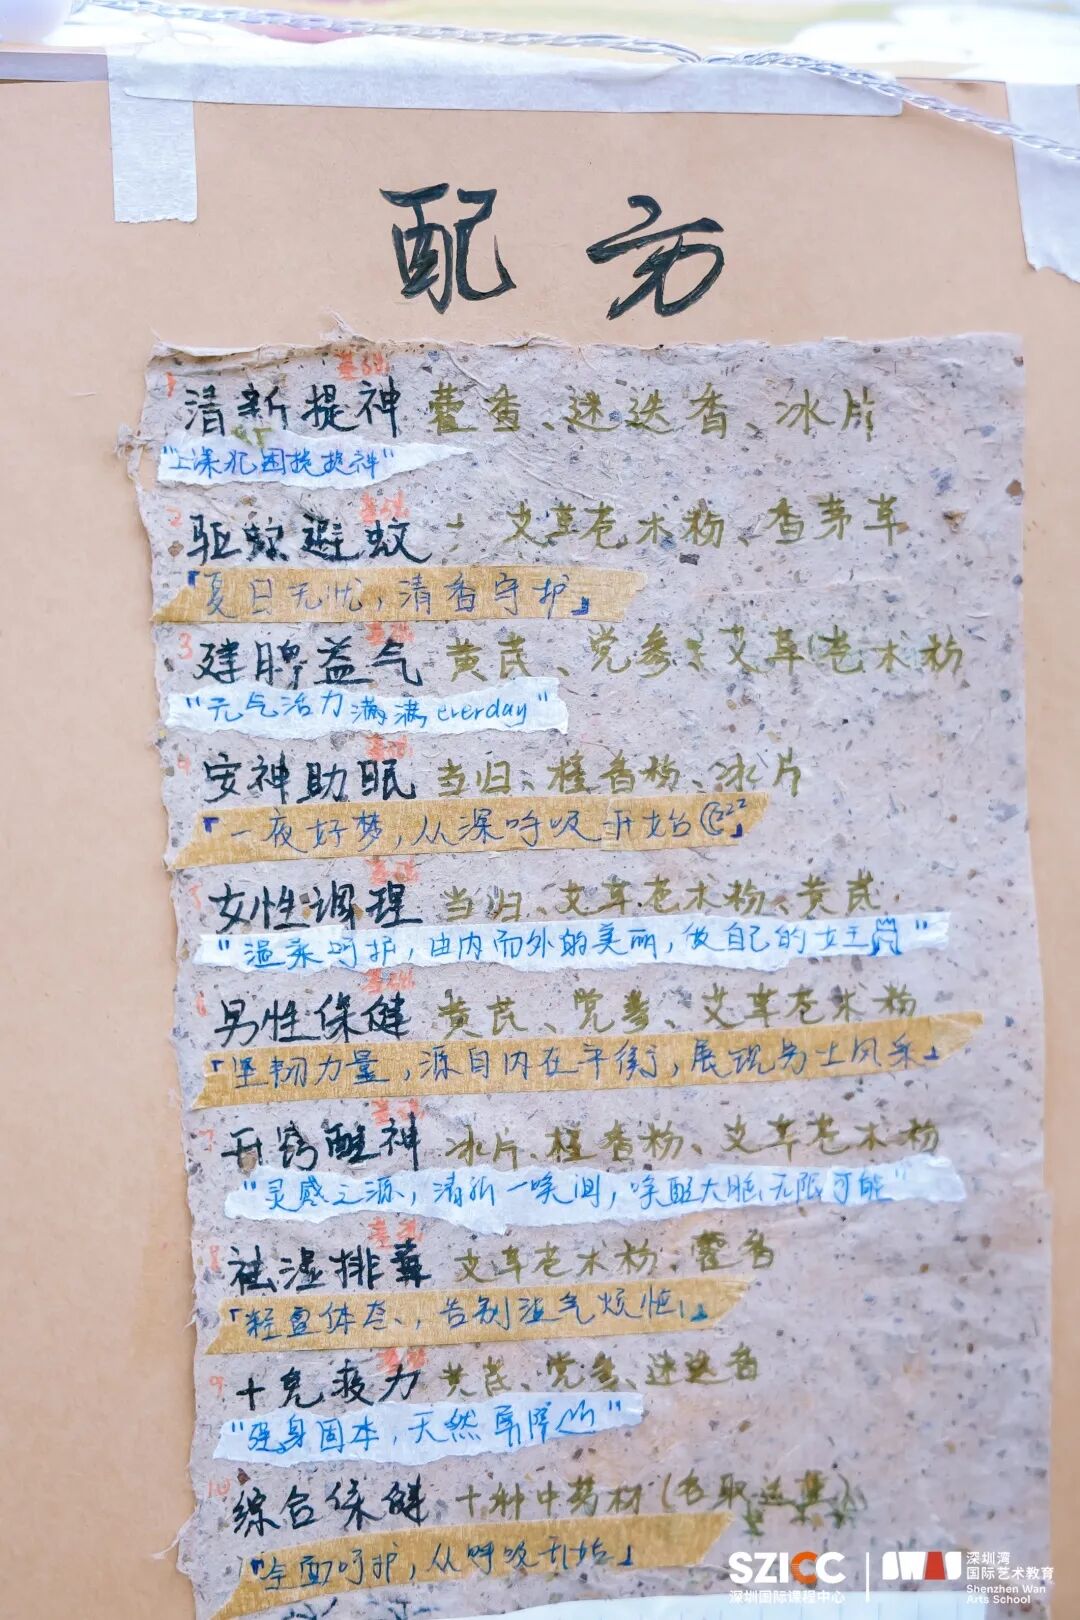 配方
1 清新提神 藿香、迷迭香、冰片
"上课犯困提提神"
2 驱蚊避蚁 艾草苍术粉、香茅草
「夏日无忧，清香守护」
3 建脾益气 黄芪、党参、艾草苍术粉
"元气活力满满everday"
4 安神助眠 当归、檀香粉、冰片
「一夜好梦，从深呼吸开始」
5 女性调理 当归、艾草苍术粉、黄芪
"温柔呵护，由内而外的美丽，做自己的女王"
6 男性保健 黄芪、党参、艾草苍术粉
「坚韧力量，源自内在平衡，展现男士风采」
7 开窍醒神 冰片、檀香粉、艾草苍术粉
"灵感之源，清新一唤间，唤醒大脑无限可能"
8 祛湿排毒 艾草苍术粉、藿香
「轻盈体态，告别湿气烦恼」
9 十免疫力 黄芪、党参、迷迭香
"强身固本，天然屏障"
10 综合保健 十种中药材(各取适量)
「全面呵护，从呼吸开始」
SZICC
深圳国际课程中心
深圳湾
国际艺术教育
Shenzhen Wan
Arts School